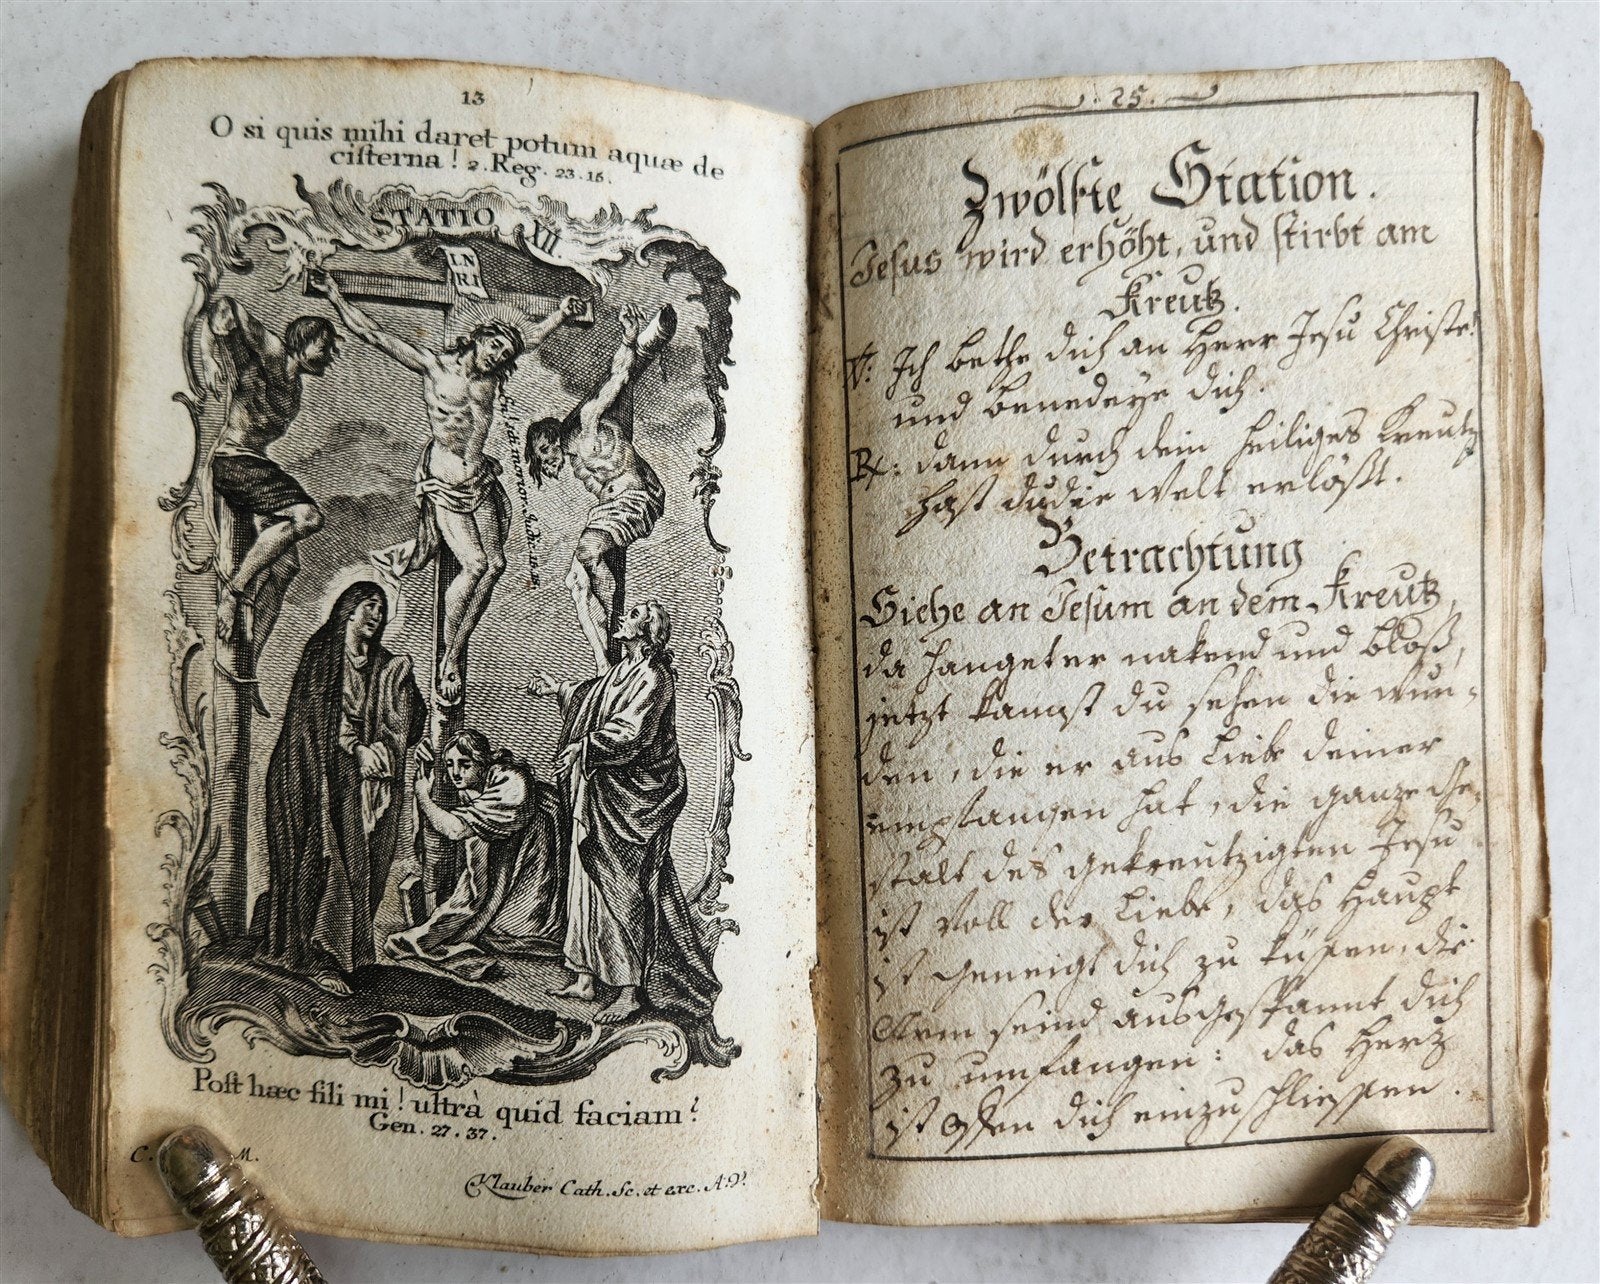 13
O si quis mihi daret potum aquæ de
ciſterna! 2. Reg. 23. 15.
STATIO XII
IN
RI
Poſt hæc fili mi! ultrà quid faciam?
Gen. 27. 37.
C. M.
Klauber Cath. Sc. et exc. A.V.
25.
Zwölfte Station.
Jesus wird erhöht, und stirbt am
Kreutz.
V: Ich bethe dich an Herr Jesu Christe!
und benedeye dich.
R: dann durch dein heiliges Kreutz
hast du die Welt erlößt.
Betrachtung
Siehe an Jesum an dem Kreutz,
da hanget er nakend und bloß,
jetzt kanst du sehen die wun-
den, die er aus Liebe deiner
empfangen hat, die ganze Ge-
stalt des gekreutzigten Jesu
ist voll der Liebe, das Haupt
ist geneigt dich zu küssen, die
Arm seind ausgespannt dich
zu umfangen: das Hertz
ist offen dich einzuschliessen.